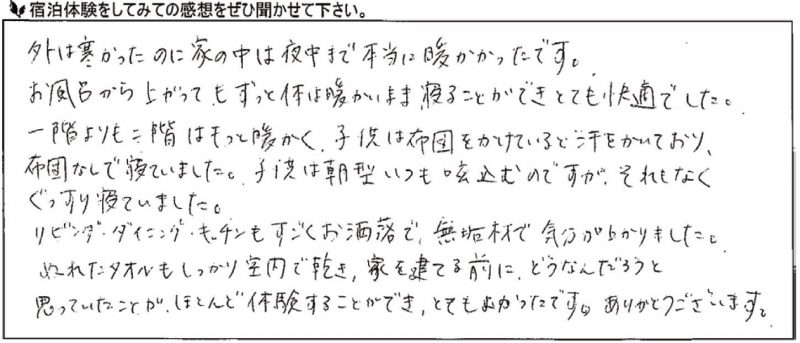 宿泊体験をしてみての感想をぜひ聞かせて下さい。
外は寒かったのに家の中は夜中まで本当に暖かかったです。
お風呂から上がってもずっと体は暖かいまま寝ることができとても快適でした。
一階よりも二階はもっと暖かく、子供は布団をかけていると汗をかいており、
布団なしで寝ていました。子供は朝型いつも咳込むのですが、それもなく
ぐっすり寝ていました。
リビング・ダイニング・キッチンもすごくお洒落で、無垢材で気分が上がりました。
ぬれたタオルもしっかり室内で乾き、家を建てる前に、どうなんだろうと
思っていたことが、ほとんど体験することができ、とてもよかったです。ありがとうございます。